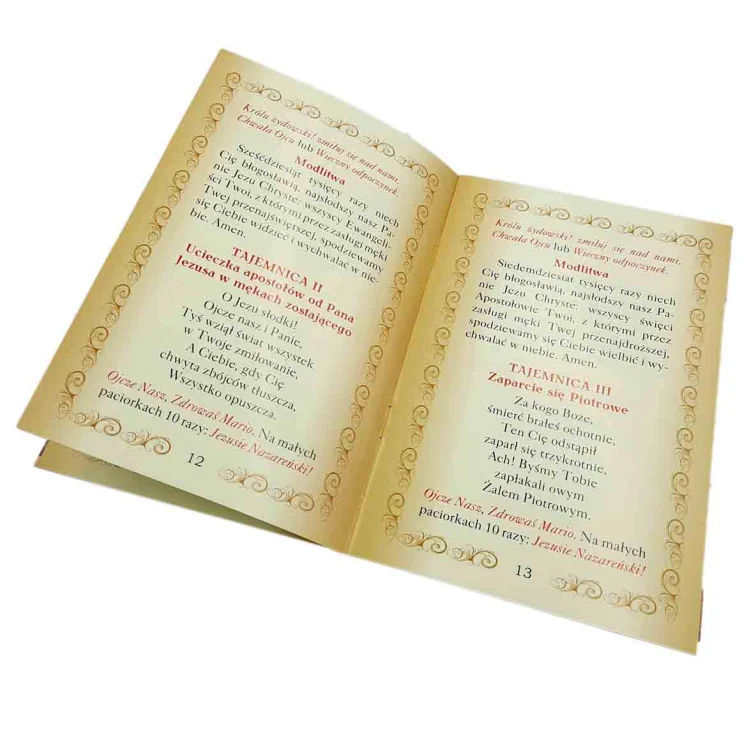 Królu żydowski! zmiłuj się nad nami.
Chwała Ojcu lub Wieczny odpoczynek.
Modlitwa
Sześćdziesiąt tysięcy razy niech
Cię błogosławią, najsłodszy nasz Pa-
nie Jezu Chryste: wszyscy Ewangeli-
ści Twoi, z którymi przez zasługi męki
Twej przenajświętszej, spodziewamy
się Ciebie widzieć i wychwalać w nie-
bie. Amen.
TAJEMNICA II
Ucieczka apostołów od Pana
Jezusa w mękach zostającego
O Jezu słodki!
Ojcze nasz i Panie,
Tyś wziął świat wszystek
w Twoje zmiłowanie,
A Ciebie, gdy Cię
chwyta zbójców tłuszcza,
Wszystko opuszcza.
Ojcze Nasz, Zdrowaś Mario. Na małych
paciorkach 10 razy: Jezusie Nazareński!
12
Królu żydowski! zmiłuj się nad nami.
Chwała Ojcu lub Wieczny odpoczynek.
Modlitwa
Siedemdziesiąt tysięcy razy niech
Cię błogosławią, najsłodszy nasz Pa-
nie Jezu Chryste: wszyscy święci
Apostołowie Twoi, z którymi przez
zasługi męki Twej przenajdroższej,
spodziewamy się Ciebie wielbić i wy-
chwalać w niebie. Amen.
TAJEMNICA III
Zaparcie się Piotrowe
Za kogo Boże,
śmierć brałeś ochotnie,
Ten Cię odstąpił
zaparł się trzykrotnie,
Ach! Byśmy Tobie
zapłakali owym
Żalem Piotrowym.
Ojcze Nasz, Zdrowaś Mario. Na małych
paciorkach 10 razy: Jezusie Nazareński!
13